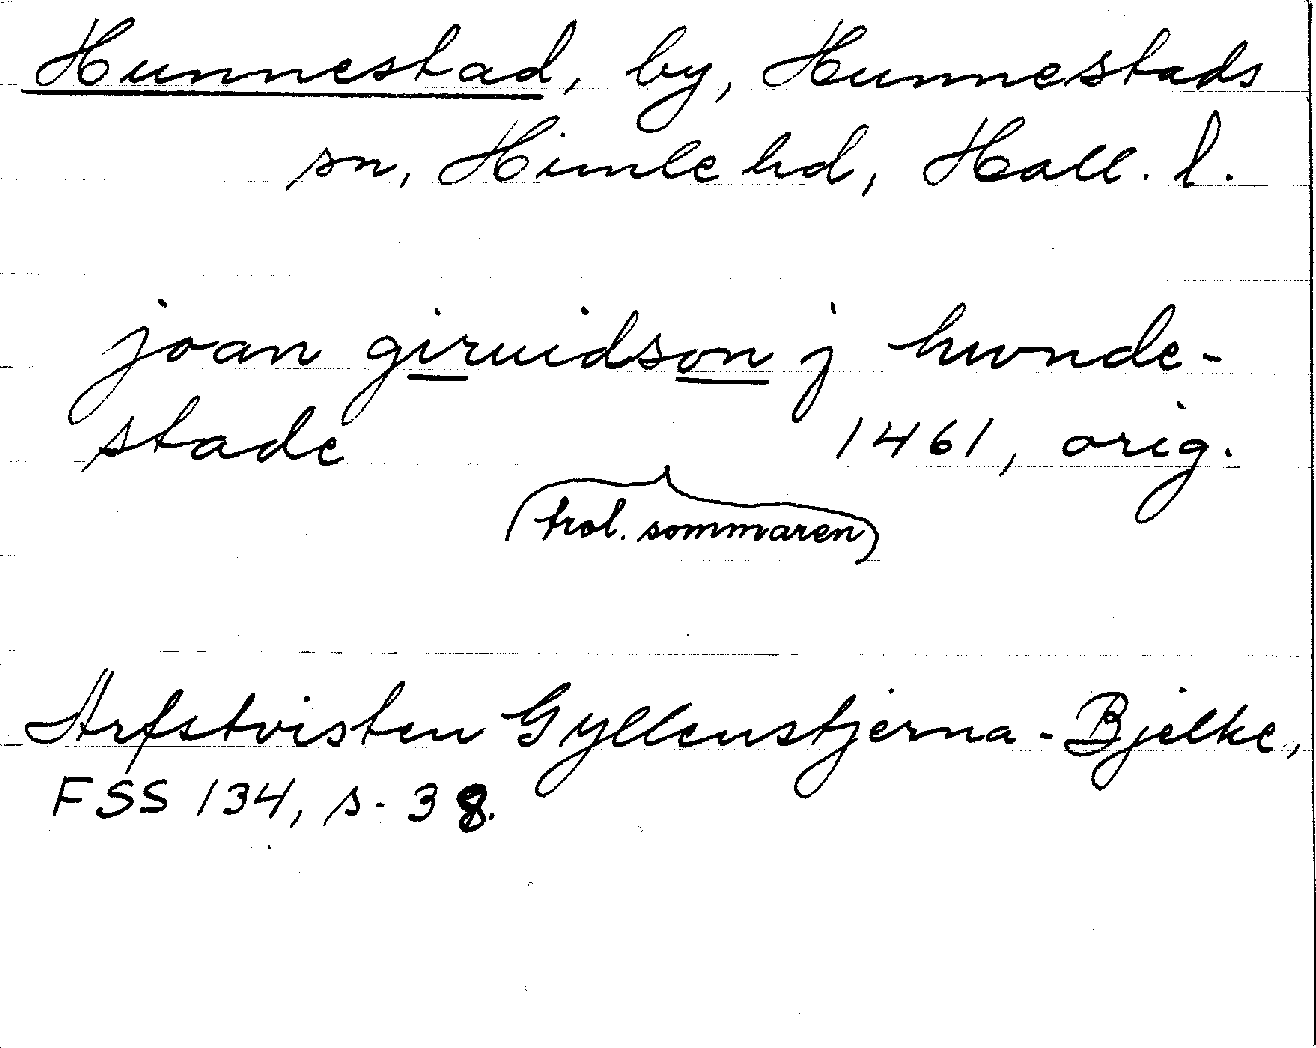 Hunnestad, by, Hunnestads
sn, Himle hd, Hall. l.
joan giruidson j hwnde-
stade 1461, orig.
(trol. sommaren)
Arfstvisten Gyllenstjerna-Bjelke,
FSS 134, s. 38.